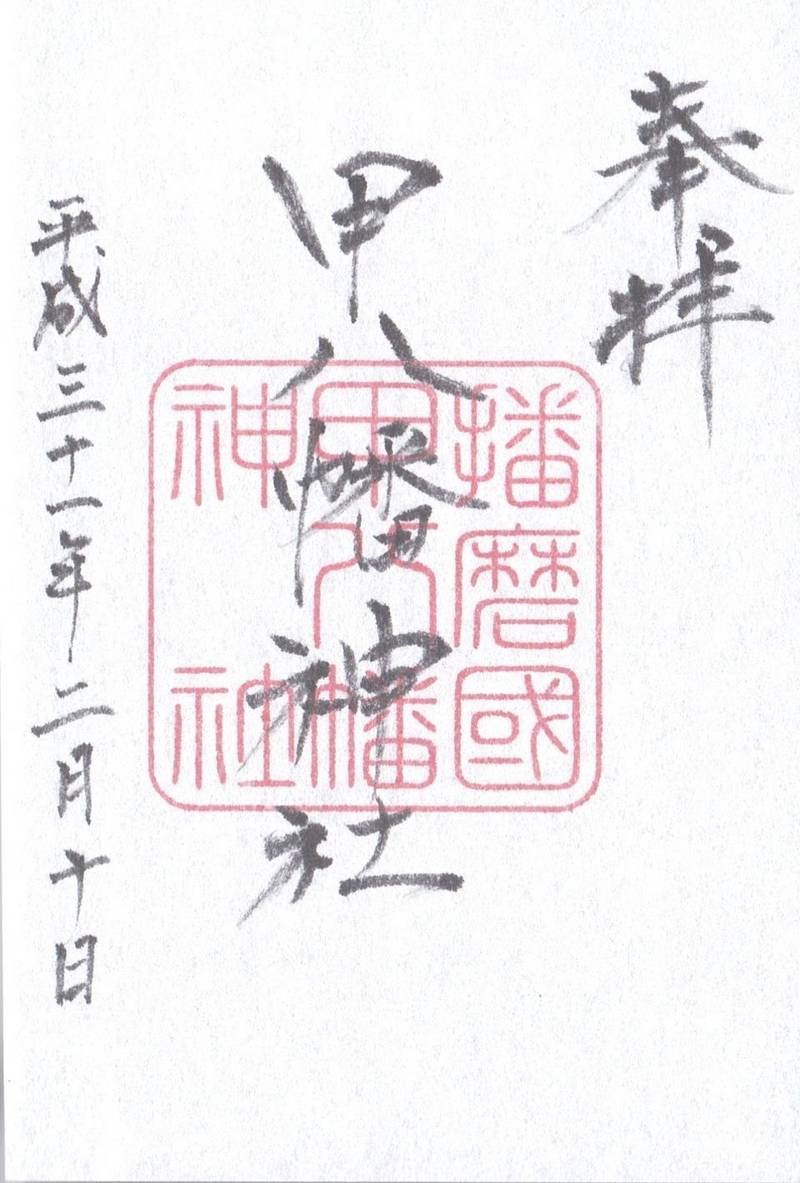 奉拝
甲八幡神社
播磨國
甲八幡
神社
平成三十一年二月十日